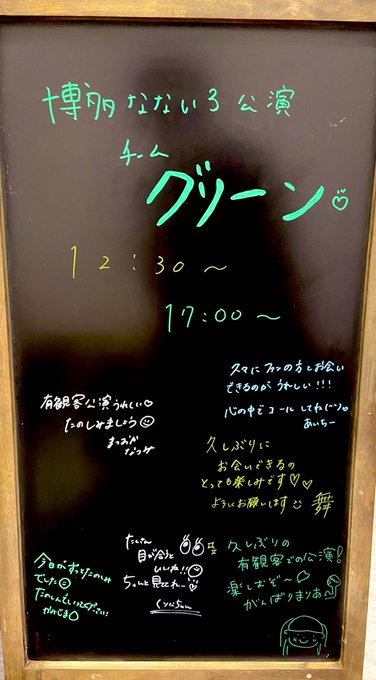 博多なないろ公演
チーム
グリーン♡
12:30〜
17:00〜
久々にファンの方とお会い
できるのがうれしい!!!
心の中でコールしてね(^^)♡
あいちー
有観客公演うれしい♡
たのしみましょう
まつおか
なつみ
久しぶりに
お会いできるの
とっても楽しみです♡♡
よろしくお願いします
舞
たくさん
目が合うと
いいね!!
ちゃんと見ててねー
久しぶりの
有観客での公演!
楽しむぞ〜♡
がんばりまりあ
今日がずっとたのしみ
でした